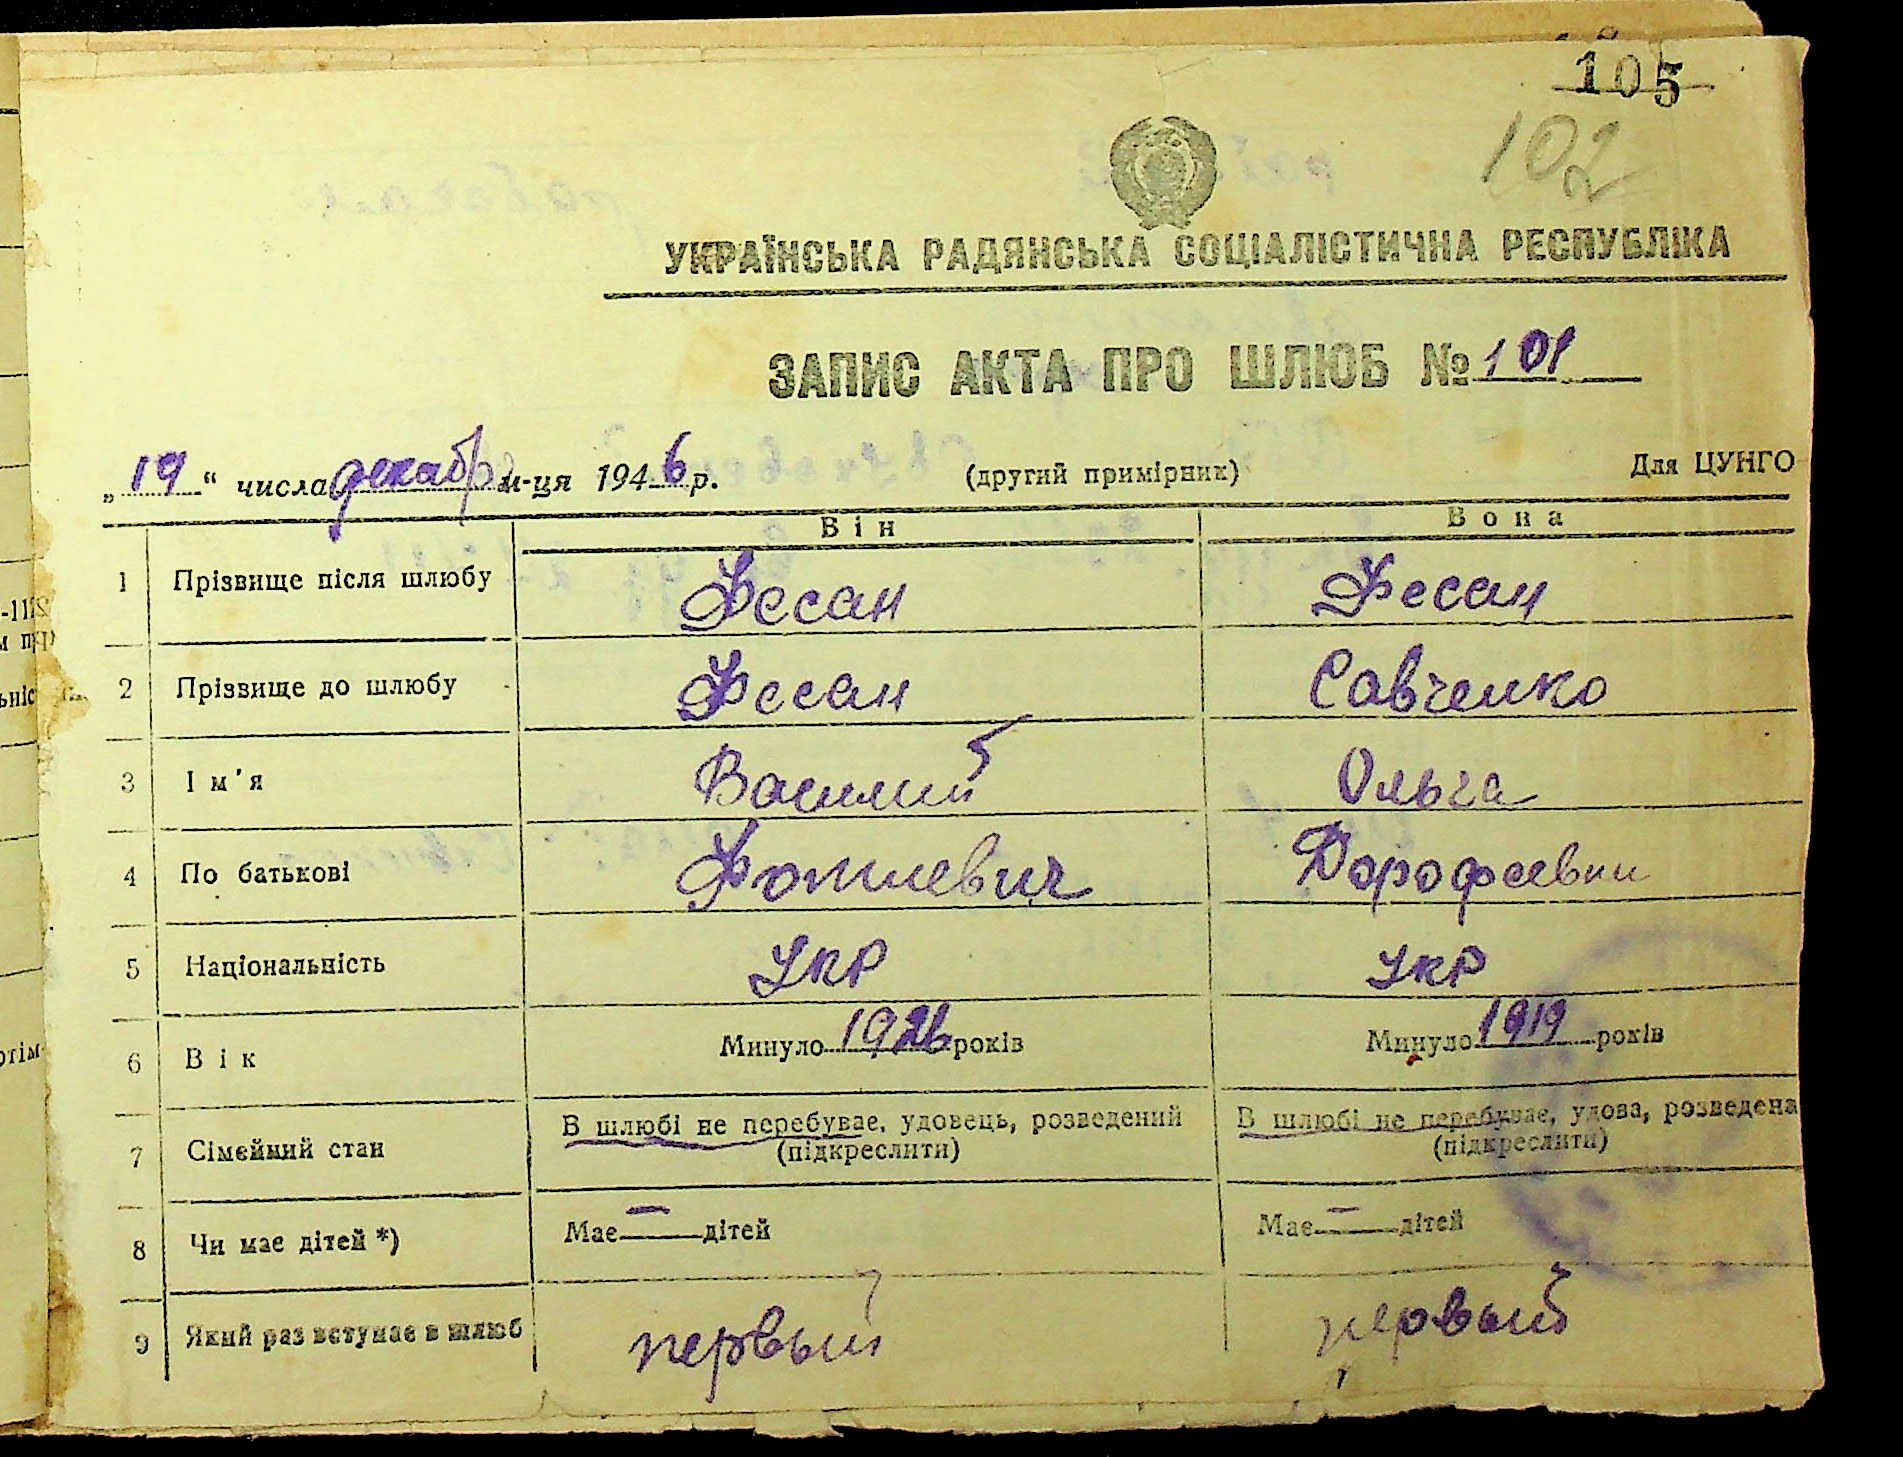 105
102
УКРАЇНСЬКА РАДЯНСЬКА СОЦІАЛІСТИЧНА РЕСПУБЛІКА
ЗАПИС АКТА ПРО ШЛЮБ № 101
„19“ числа декабря м-ця 1946 р. (другий примірник) Для ЦУНГО
Він Вона
1 Прізвище після шлюбу Фесан Фесан
2 Прізвище до шлюбу Фесан Савченко
3 Ім'я Василий Ольга
4 По батькові Фотиевич Дорофеевна
5 Національність Укр Укр
6 Вік Минуло 1926 років Минуло 1919 років
7 Сімейний стан В шлюбі не перебуває, удовець, розведений (підкреслити) В шлюбі не перебуває, удова, розведена (підкреслити)
8 Чи має дітей *) Має — дітей Має — дітей
9 Який раз вступає в шлюб первый первый